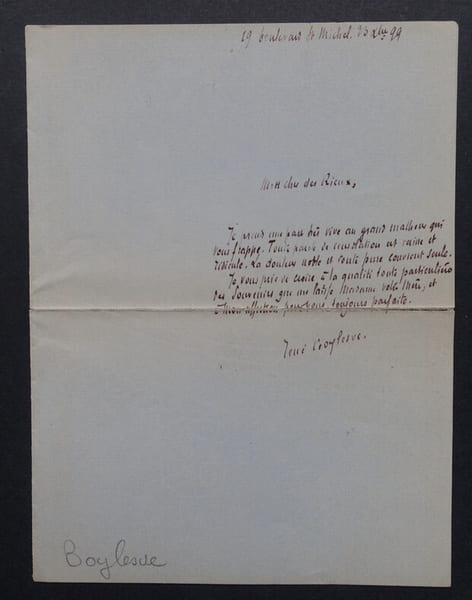 19 boulevard St Michel. 23 xbre 99
Mon cher des Rieux,
Je prends une part très vive au grand malheur qui
vous frappe. Toute parole de consolation est vaine et
ridicule. La douleur noble et toute pure convient seule.
Je vous prie de croire à la qualité toute particulière
des souvenirs que me laisse Madame votre Mère, et
à mon affection pour vous toujours parfaite.
René Boylesve.
Boylesve